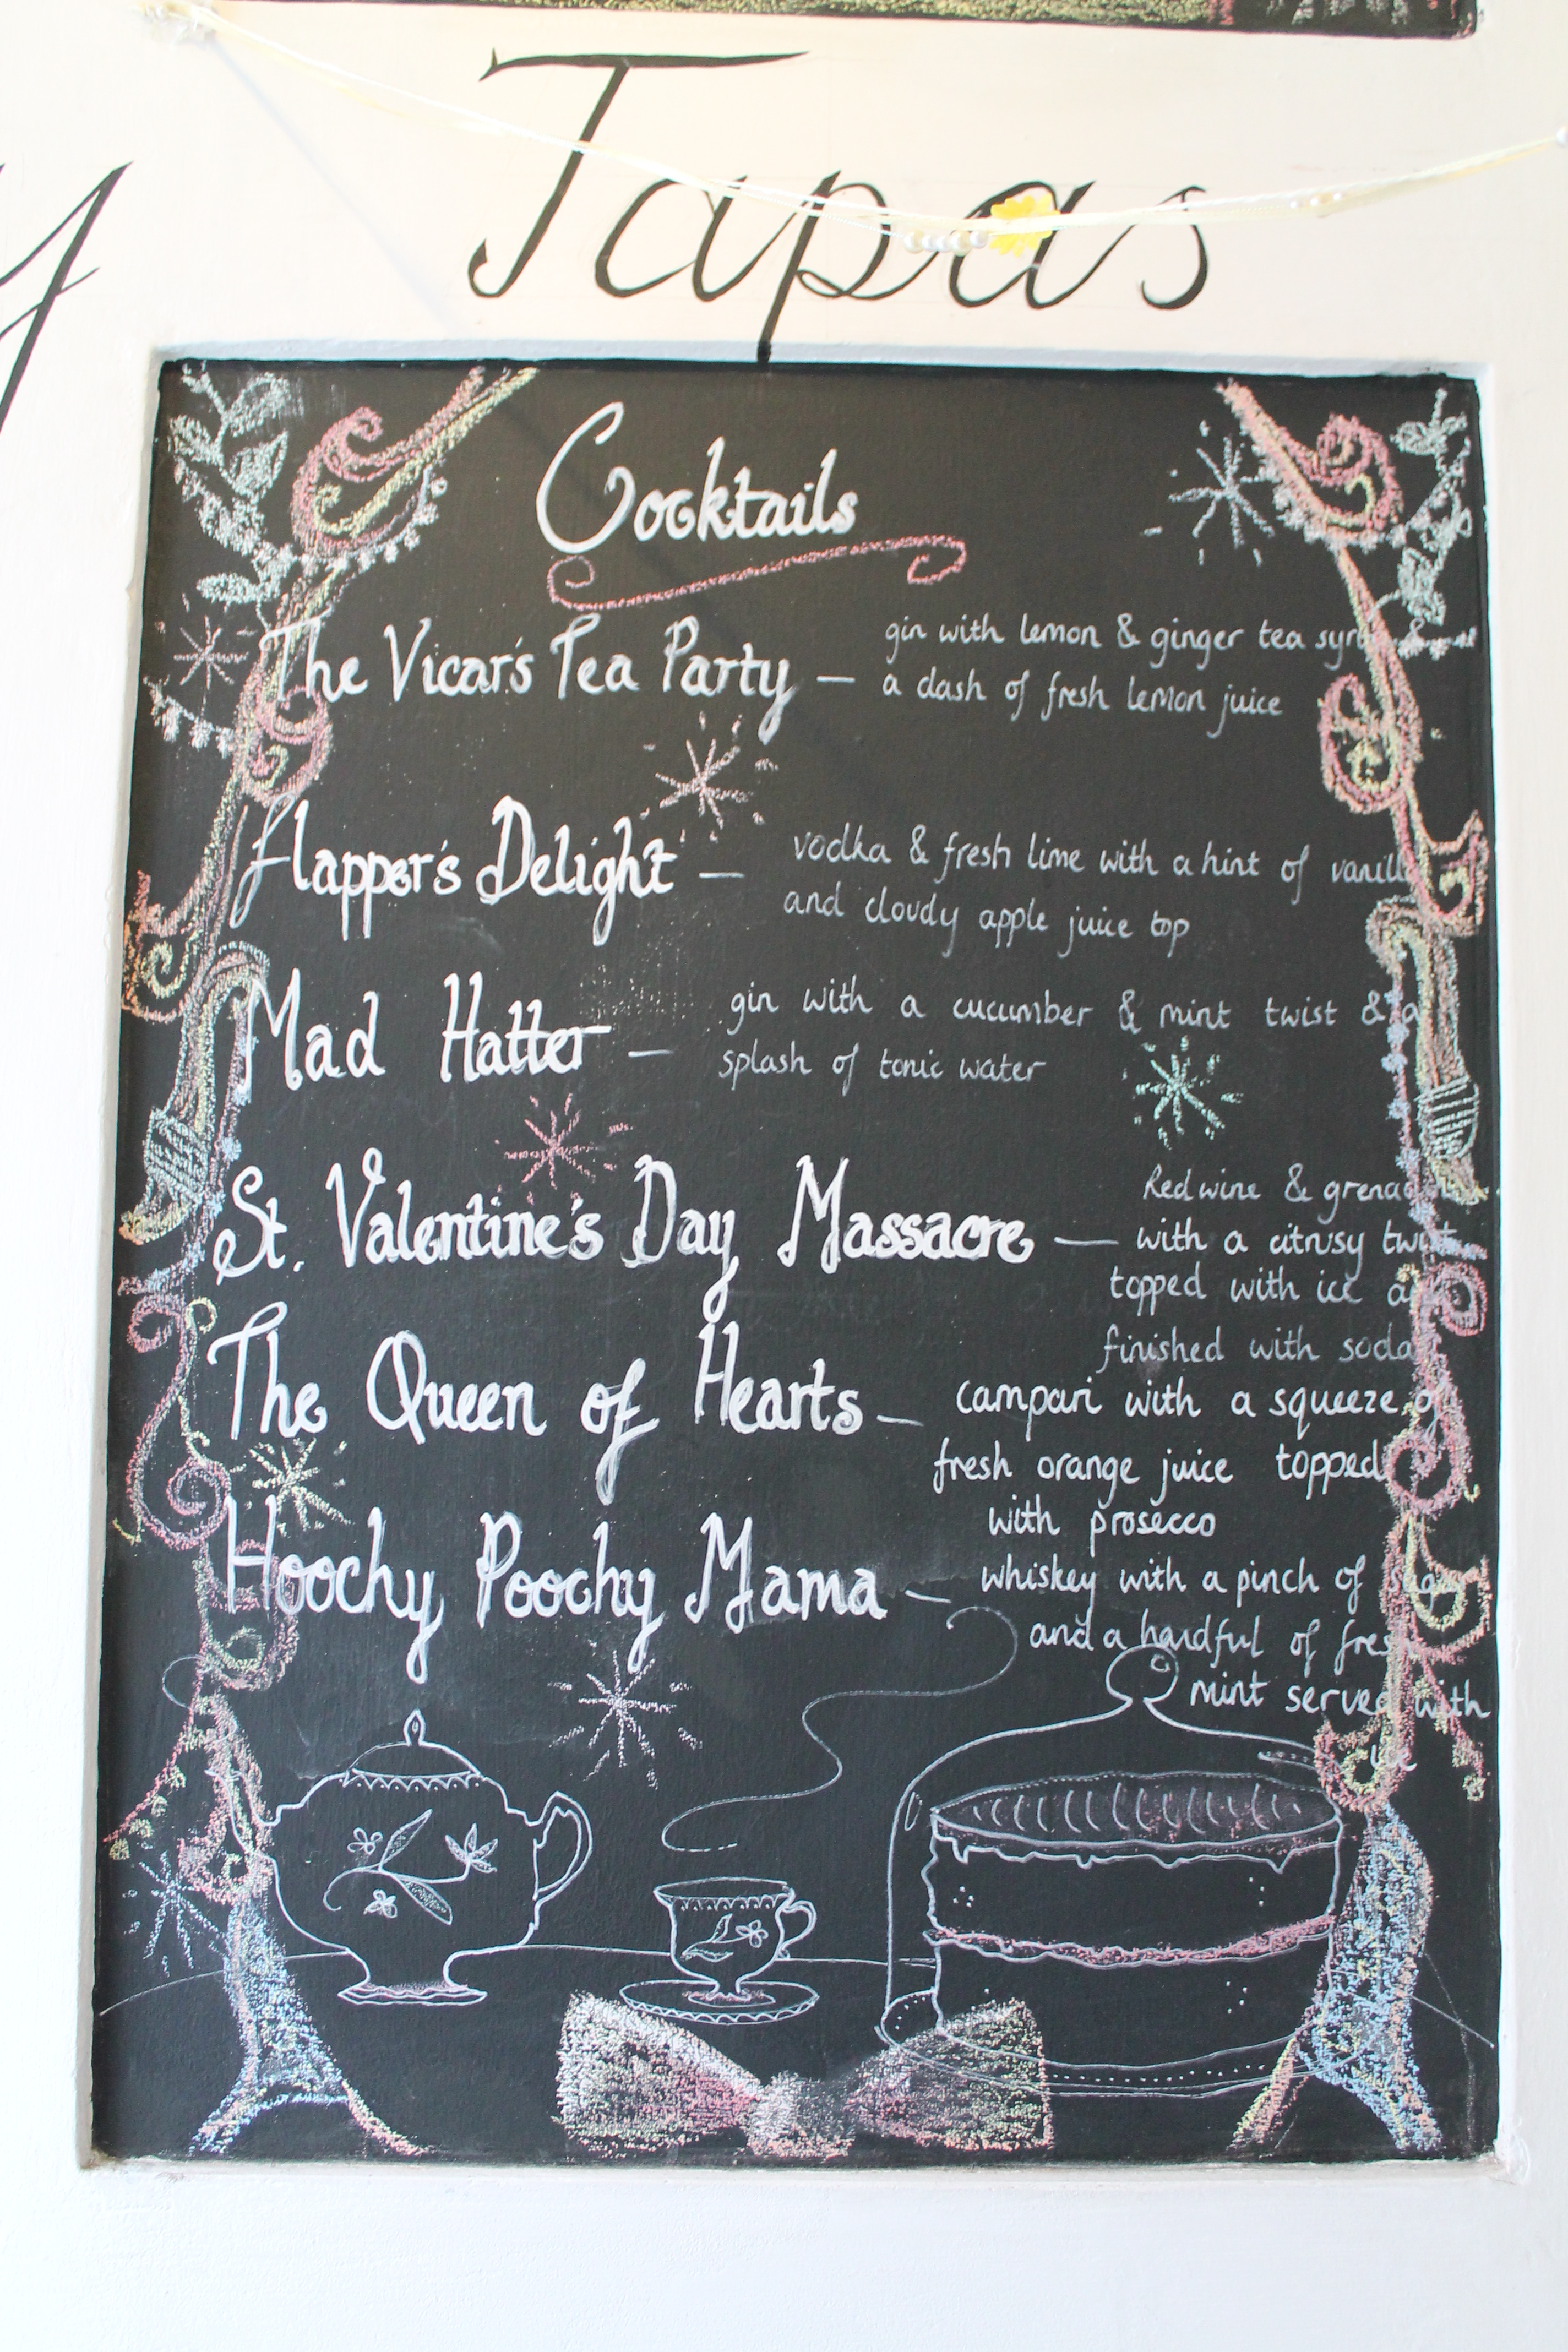 Tapas
Cocktails
The Vicar's Tea Party — gin with lemon & ginger tea
a dash of fresh lemon juice
Flapper's Delight — vodka & fresh lime with a hint of
and cloudy apple juice top
Mad Hatter — gin with a cucumber & mint twist & a
splash of tonic water
St. Valentine's Day Massacre — Red wine &
with a citrusy twist
topped with ice
finished with soda
The Queen of Hearts — campari with a squeeze of
fresh orange juice topped
with prosecco
Hoochy Poochy Mama — whiskey with a pinch of
and a handful of
mint served with